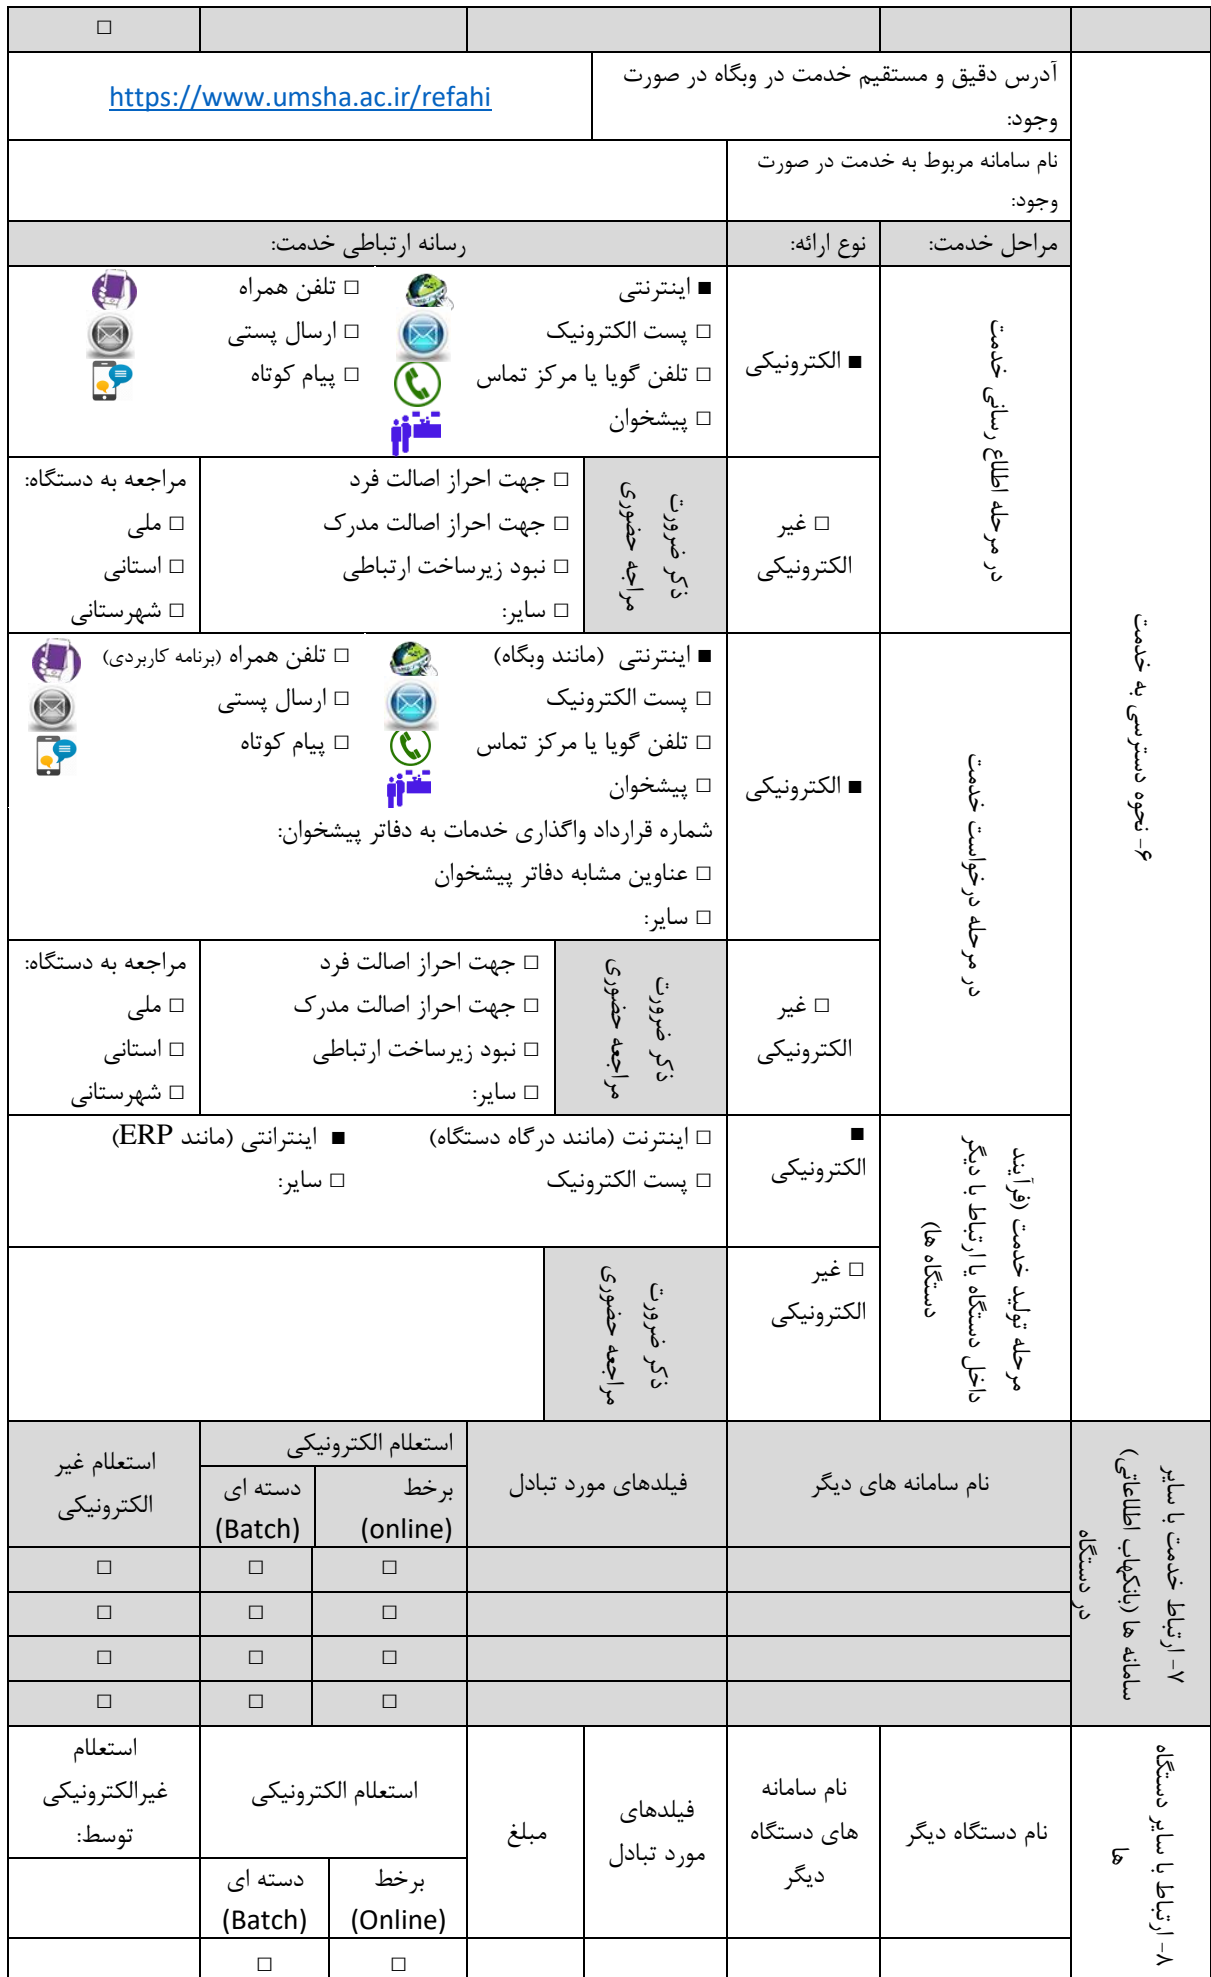 □
۶- نحوه دسترسی به خدمت
آدرس دقیق و مستقیم خدمت در وبگاه در صورت
وجود:
https://www.umsha.ac.ir/refahi
نام سامانه مربوط به خدمت در صورت
وجود:
مراحل خدمت:
نوع ارائه:
رسانه ارتباطی خدمت:
در مرحله اطلاع رسانی خدمت
■ الکترونیکی
■ اینترنتی
□ تلفن همراه
□ پست الکترونیک
□ ارسال پستی
□ تلفن گویا یا مرکز تماس
□ پیام کوتاه
□ پیشخوان
□ غیر
الکترونیکی
ذکر ضرورت
مراجه حضوری
□ جهت احراز اصالت فرد
□ جهت احراز اصالت مدرک
□ نبود زیرساخت ارتباطی
□ سایر:
مراجعه به دستگاه:
□ ملی
□ استانی
□ شهرستانی
در مرحله درخواست خدمت
■ الکترونیکی
■ اینترنتی (مانند وبگاه)
□ تلفن همراه (برنامه کاربردی)
□ پست الکترونیک
□ ارسال پستی
□ تلفن گویا یا مرکز تماس
□ پیام کوتاه
□ پیشخوان
شماره قرارداد واگذاری خدمات به دفاتر پیشخوان:
□ عناوین مشابه دفاتر پیشخوان
□ سایر:
□ غیر
الکترونیکی
ذکر ضرورت
مراجعه حضوری
□ جهت احراز اصالت فرد
□ جهت احراز اصالت مدرک
□ نبود زیرساخت ارتباطی
□ سایر:
مراجعه به دستگاه:
□ ملی
□ استانی
□ شهرستانی
مرحله تولید خدمت (فرآیند
داخل دستگاه یا ارتباط با دیگر
دستگاه ها)
■
الکترونیکی
□ اینترنت (مانند درگاه دستگاه)
■ اینترانتی (مانند ERP)
□ پست الکترونیک
□ سایر:
□ غیر
الکترونیکی
ذکر ضرورت
مراجعه حضوری
۷- ارتباط خدمت با سایر
سامانه ها (بانکهاب اطلاعاتی)
در دستگاه
نام سامانه های دیگر
فیلدهای مورد تبادل
استعلام الکترونیکی
برخط
(online)
دسته ای
(Batch)
استعلام غیر
الکترونیکی
□ □ □
□ □ □
□ □ □
□ □ □
۸- ارتباط با سایر دستگاه
ها
نام دستگاه دیگر
نام سامانه
های دستگاه
دیگر
فیلدهای
مورد تبادل
مبلغ
استعلام الکترونیکی
استعلام
غیرالکترونیکی
توسط:
برخط
(Online)
دسته ای
(Batch)
□ □